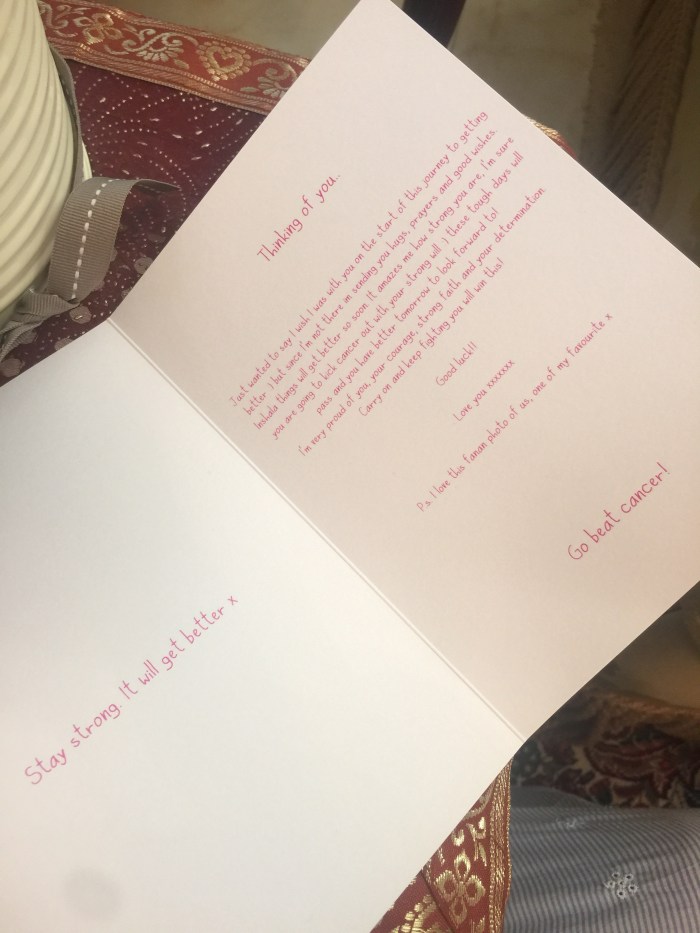 Stay strong. It will get better x
Thinking of you..
Just wanted to say I wish I was with you on the start of this journey to getting
better :) but since I'm not there im sending you hugs, prayers and good wishes.
Inshala things will get better so soon. It amazes me how strong you are, I'm sure
you are going to kick cancer out with your strong will :) these tough days will
pass and you have better tomorrow to look forward to!
I'm very proud of you, your courage, strong faith and your determination
Carry on and keep fighting you will win this!
Good luck!!
Love you xxxxxxx
P.s. I love this fanan photo of us, one of my favourite x
Go beat cancer!